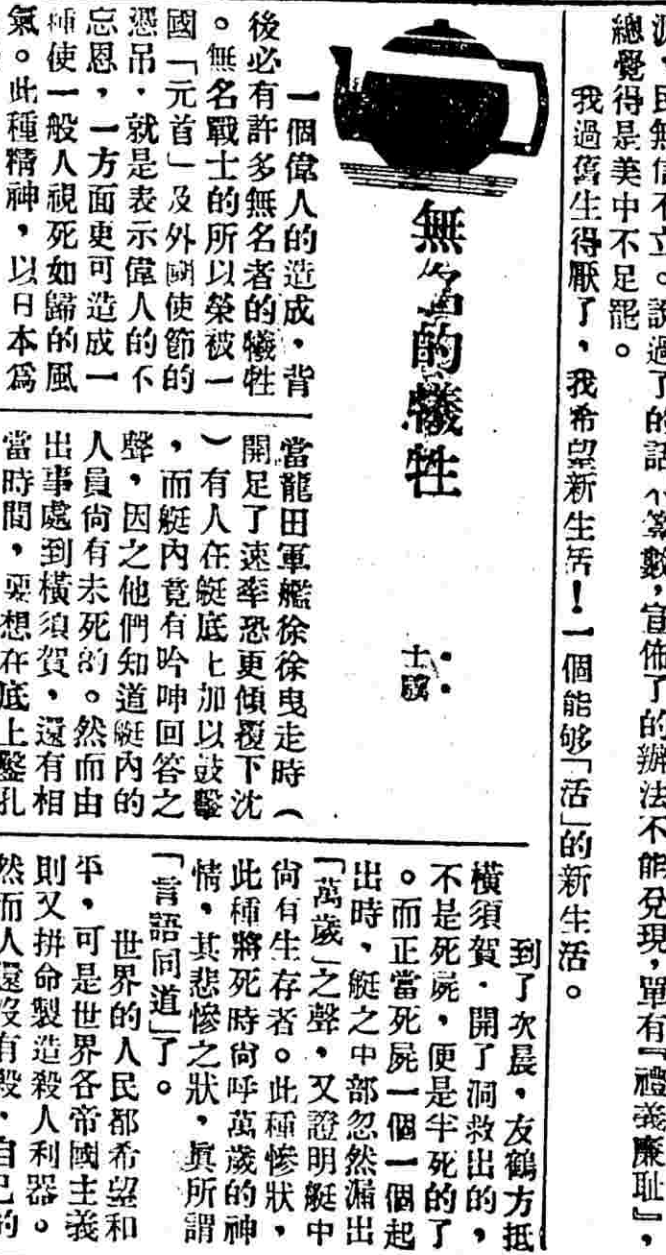 派，民無信不立。說過了的話不算數，宣佈了的辦法不能兌現，單有『禮義廉耻』，
總覺得是美中不足罷。
我過舊生得厭了，我希望新生活！一個能够「活」的新生活。
無名的犧牲
士驥
一個偉人的造成，背
後必有許多無名者的犧牲
。無名戰士的所以榮被一
國「元首」及外國使節的
憑吊，就是表示偉人的不
忘恩，一方面更可造成一
種使一般人視死如歸的風
氣。此種精神，以日本爲
當龍田軍艦徐徐曳走時（
開足了速率恐更傾覆下沈
）有人在艇底上加以鼓鑿
，而艇內竟有吟呻回答之
聲，因之他們知道艇內的
人員尙有未死的。然而由
出事處到橫須賀，還有相
當時間，要想在底上鑿孔
到了次晨，友鶴方抵
橫須賀，開了洞救出的，
不是死屍，便是半死的了
。而正當死屍一個一個起
出時，艇之中部忽然漏出
「萬歲」之聲，又證明艇中
尙有生存者。此種慘狀，
此種將死時尙呼萬歲的神
情，其悲慘之狀，眞所謂
「言語同道」了。
世界的人民都希望和
平，可是世界各帝國主義
則又拼命製造殺人利器。
然而人還沒有殺，自己的